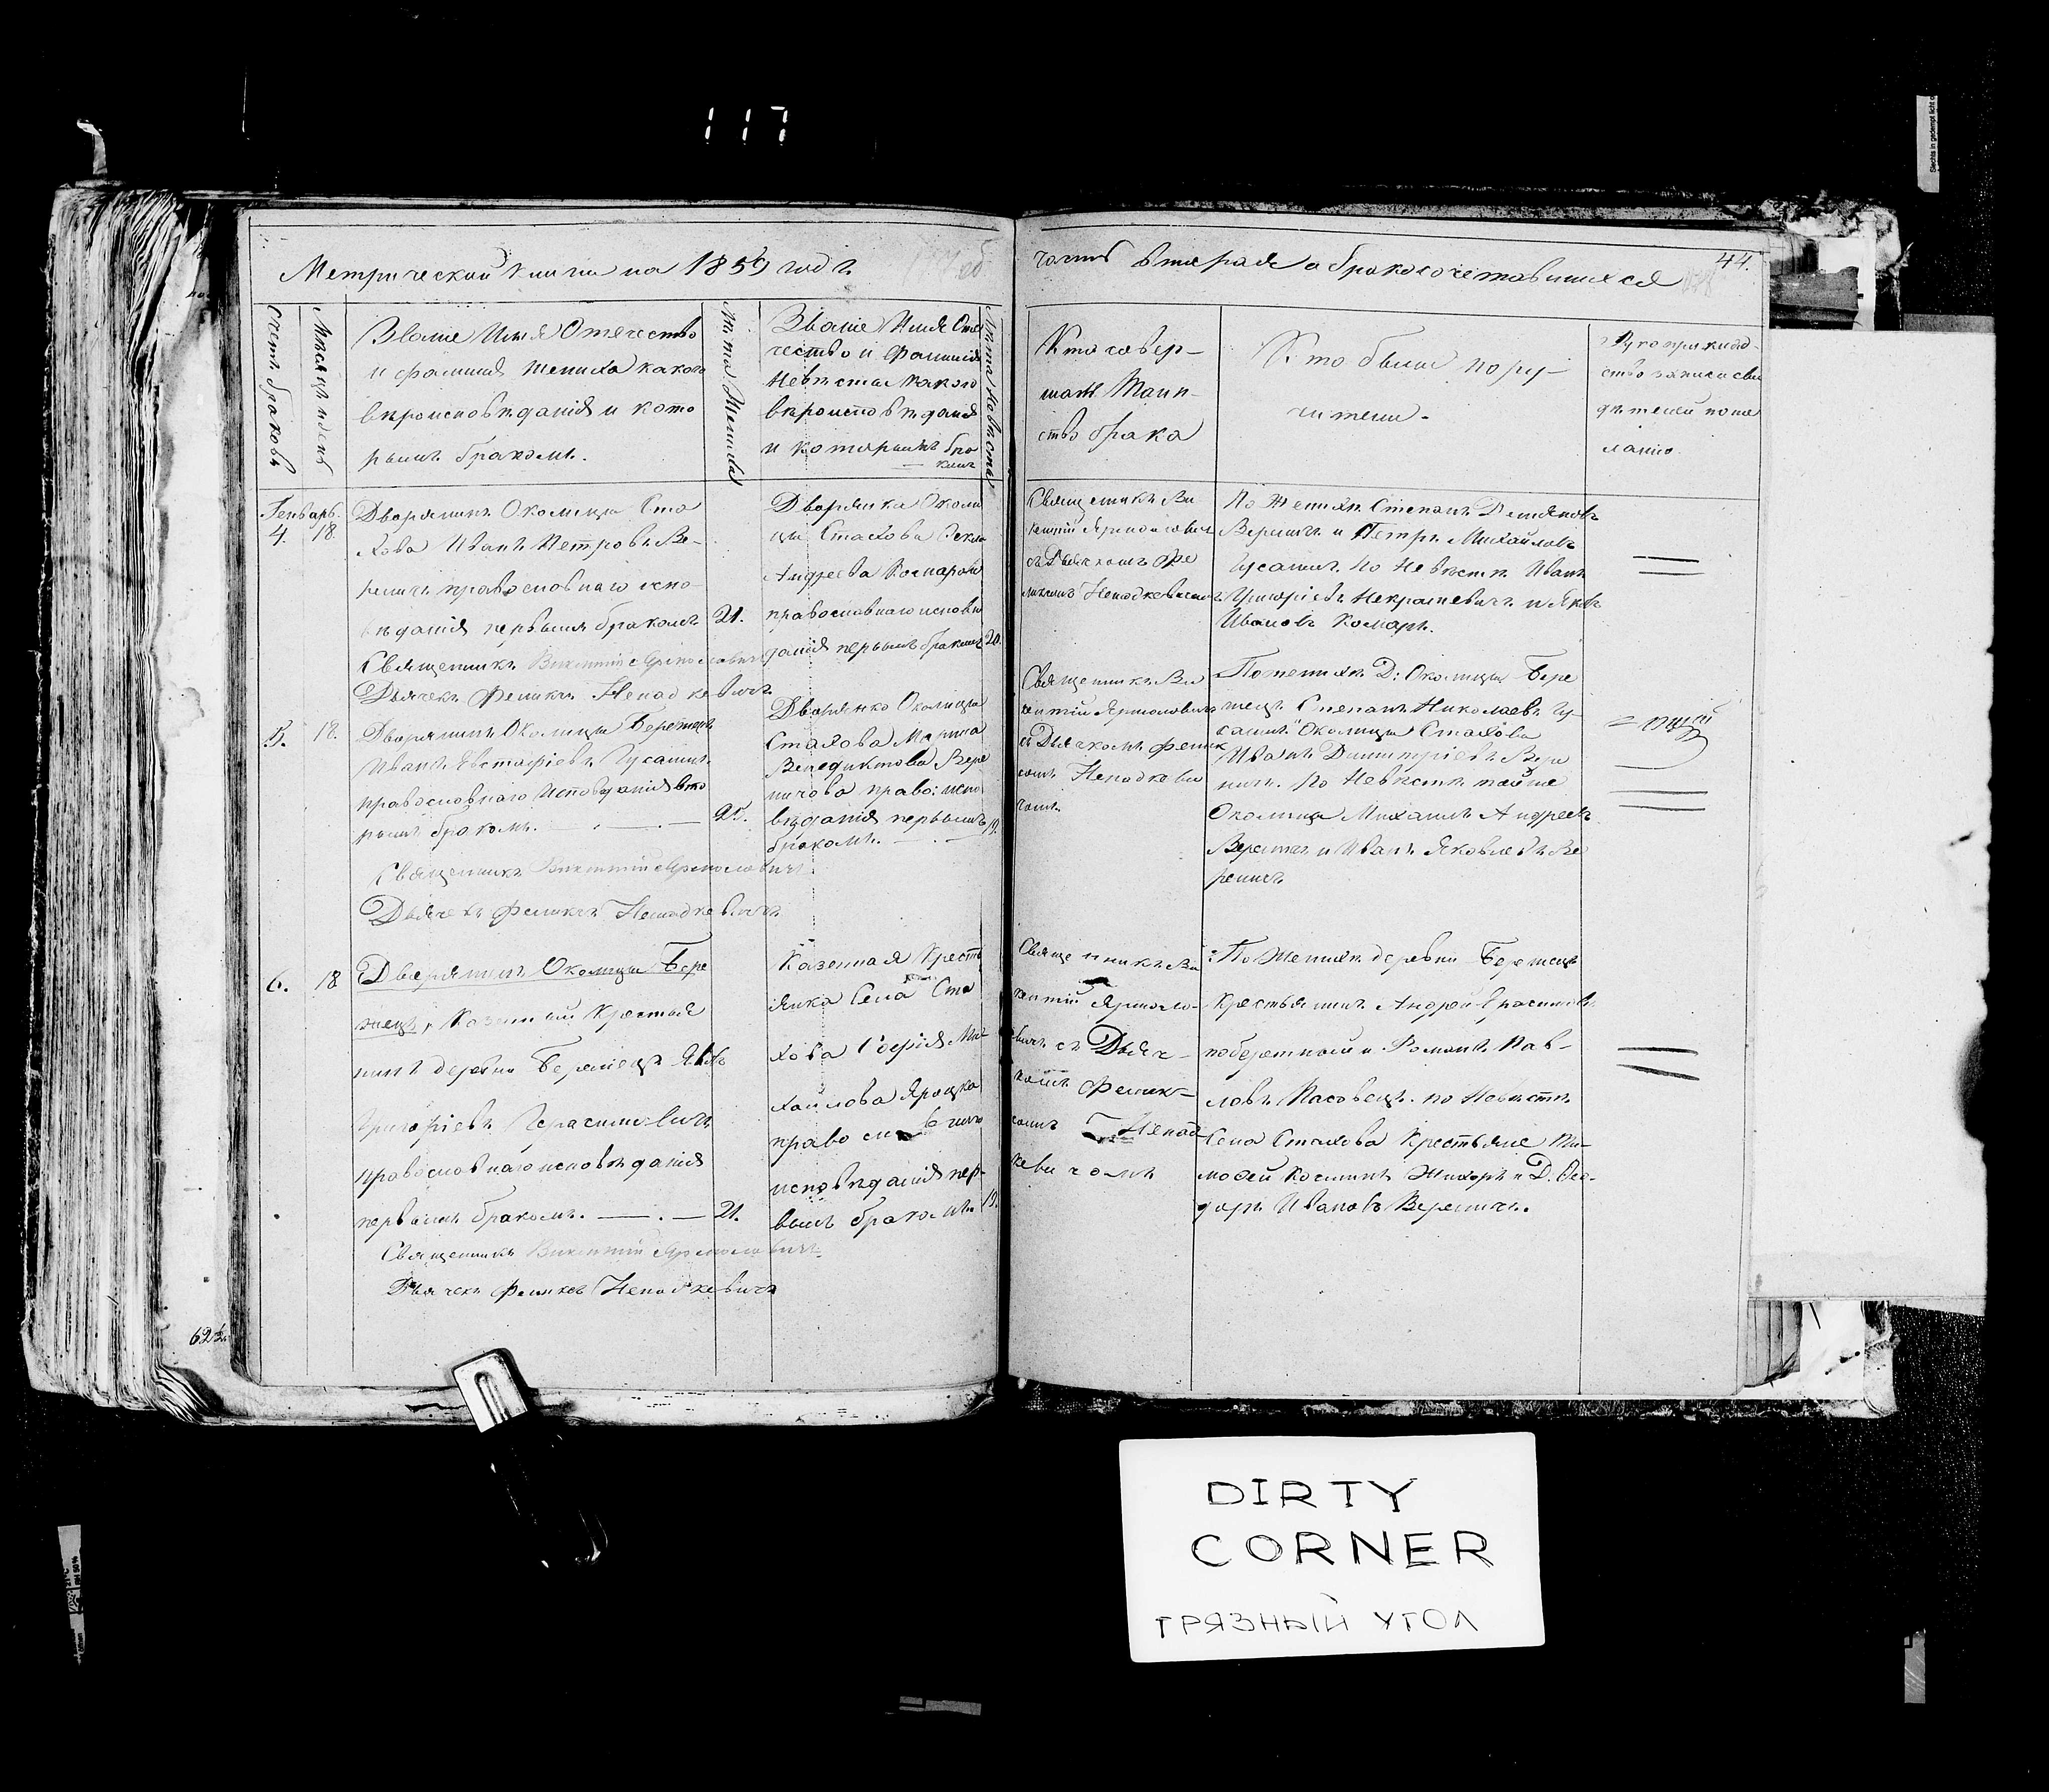 117
Метрической книги на 1859 годъ
часть вторая о бракосочетавшихся
44.
Счетъ браковъ
Мѣсяцъ и день
Званіе Имя Отечество
и фамилія жениха какого
вѣроисповѣданія и кото
рымъ бракомъ.
Лѣта Жениха
Званіе Имя Оте
чество и Фамилія
Невѣсты какого
вѣроисповѣданія
и которымъ бра
комъ
Лѣта Невѣсты
Кто совер-
шалъ Таин-
ство брака
Кто были пору-
чители.
Рукоприклад-
ство записи сви
дѣтелей по же
ланію
Генварь.
4. 18.
Дворянинъ Околицы Ста
хова Иванъ Петровъ Ве-
реничъ православнаго испо-
вѣданія первымъ бракомъ
21.
Священникъ Викентій Ярмоловичъ
Дьячекъ Феликсъ Ненадкевичъ
Дворянка Околи
цы Стахова Текля
Андреева Комарова
православнаго исповѣ
данія первымъ бракомъ
20.
Священникъ Ви
кентій Ярмоловичъ
съ Дьячкомъ Фе
ликсомъ Ненадкевичемъ
По Женихѣ Степанъ Демяновъ
Вереничъ и Петръ Михайловъ
Гусаимъ. По Невѣстѣ Иванъ
Григорьевъ Некрашевичъ и Яковъ
Ивановъ Комаръ.
5. 18.
Дворянинъ Околицы Бережецъ
Иванъ Евстафіевъ Гусаимъ.
православнаго Исповѣданія вто
рымъ бракомъ.
25.
Священникъ Викентій Ярмоловичъ.
Дьячекъ Феликсъ Ненадкевичъ
Дворянка Околицы
Стахова Марина
Венедиктова Вере
ничова право: испо
вѣданія первымъ
бракомъ.
19.
Священникъ Ви
кентій Ярмоловичъ
съ Дьячкомъ Фелик
сомъ Ненадкеви
чомъ.
По женихѣ Д: Околицы Бере
жецъ Степанъ Николаевъ Гу-
саимъ Околицы Стахова
Иванъ Димитріевъ Вере
ничъ. По Невѣстѣ той же
Околицы Михаилъ Андреевъ
Вереничъ и Иванъ Яковлевъ Ве
реничъ
6. 18
Дворянинъ Околицы Бере
жецъ, Казенный Крестья
нинъ деревни Бережецъ Яковъ
Григоріевъ Герасимовичъ
православнаго исповѣданія
первымъ бракомъ.
21.
Священникъ Викентій Ярмоловичъ
Дьячекъ Феликсъ Ненадкевичъ
Казенная Кресть
янка Села Ста
хова Софія Ми-
хайлова Яроцка
православнаго
исповѣданія пер-
вымъ бракомъ.
19.
Священникъ Ви
кентій Ярмоло-
вичъ съ Дьяч-
комъ Фелик-
сомъ Ненад-
кевичомъ
По Женихѣ деревни Бережецъ
Крестьянинъ Андрей Ерасимовъ
побережный и Романъ Пав-
ловъ Пасовецъ. по Невѣстѣ
Села Стахова Крестьяне Ти-
мофей Косминъ Жихоръ и Д. Фео-
доръ Ивановъ Вереничъ.
DIRTY
CORNER
ГРЯЗНЫЙ УГОЛ